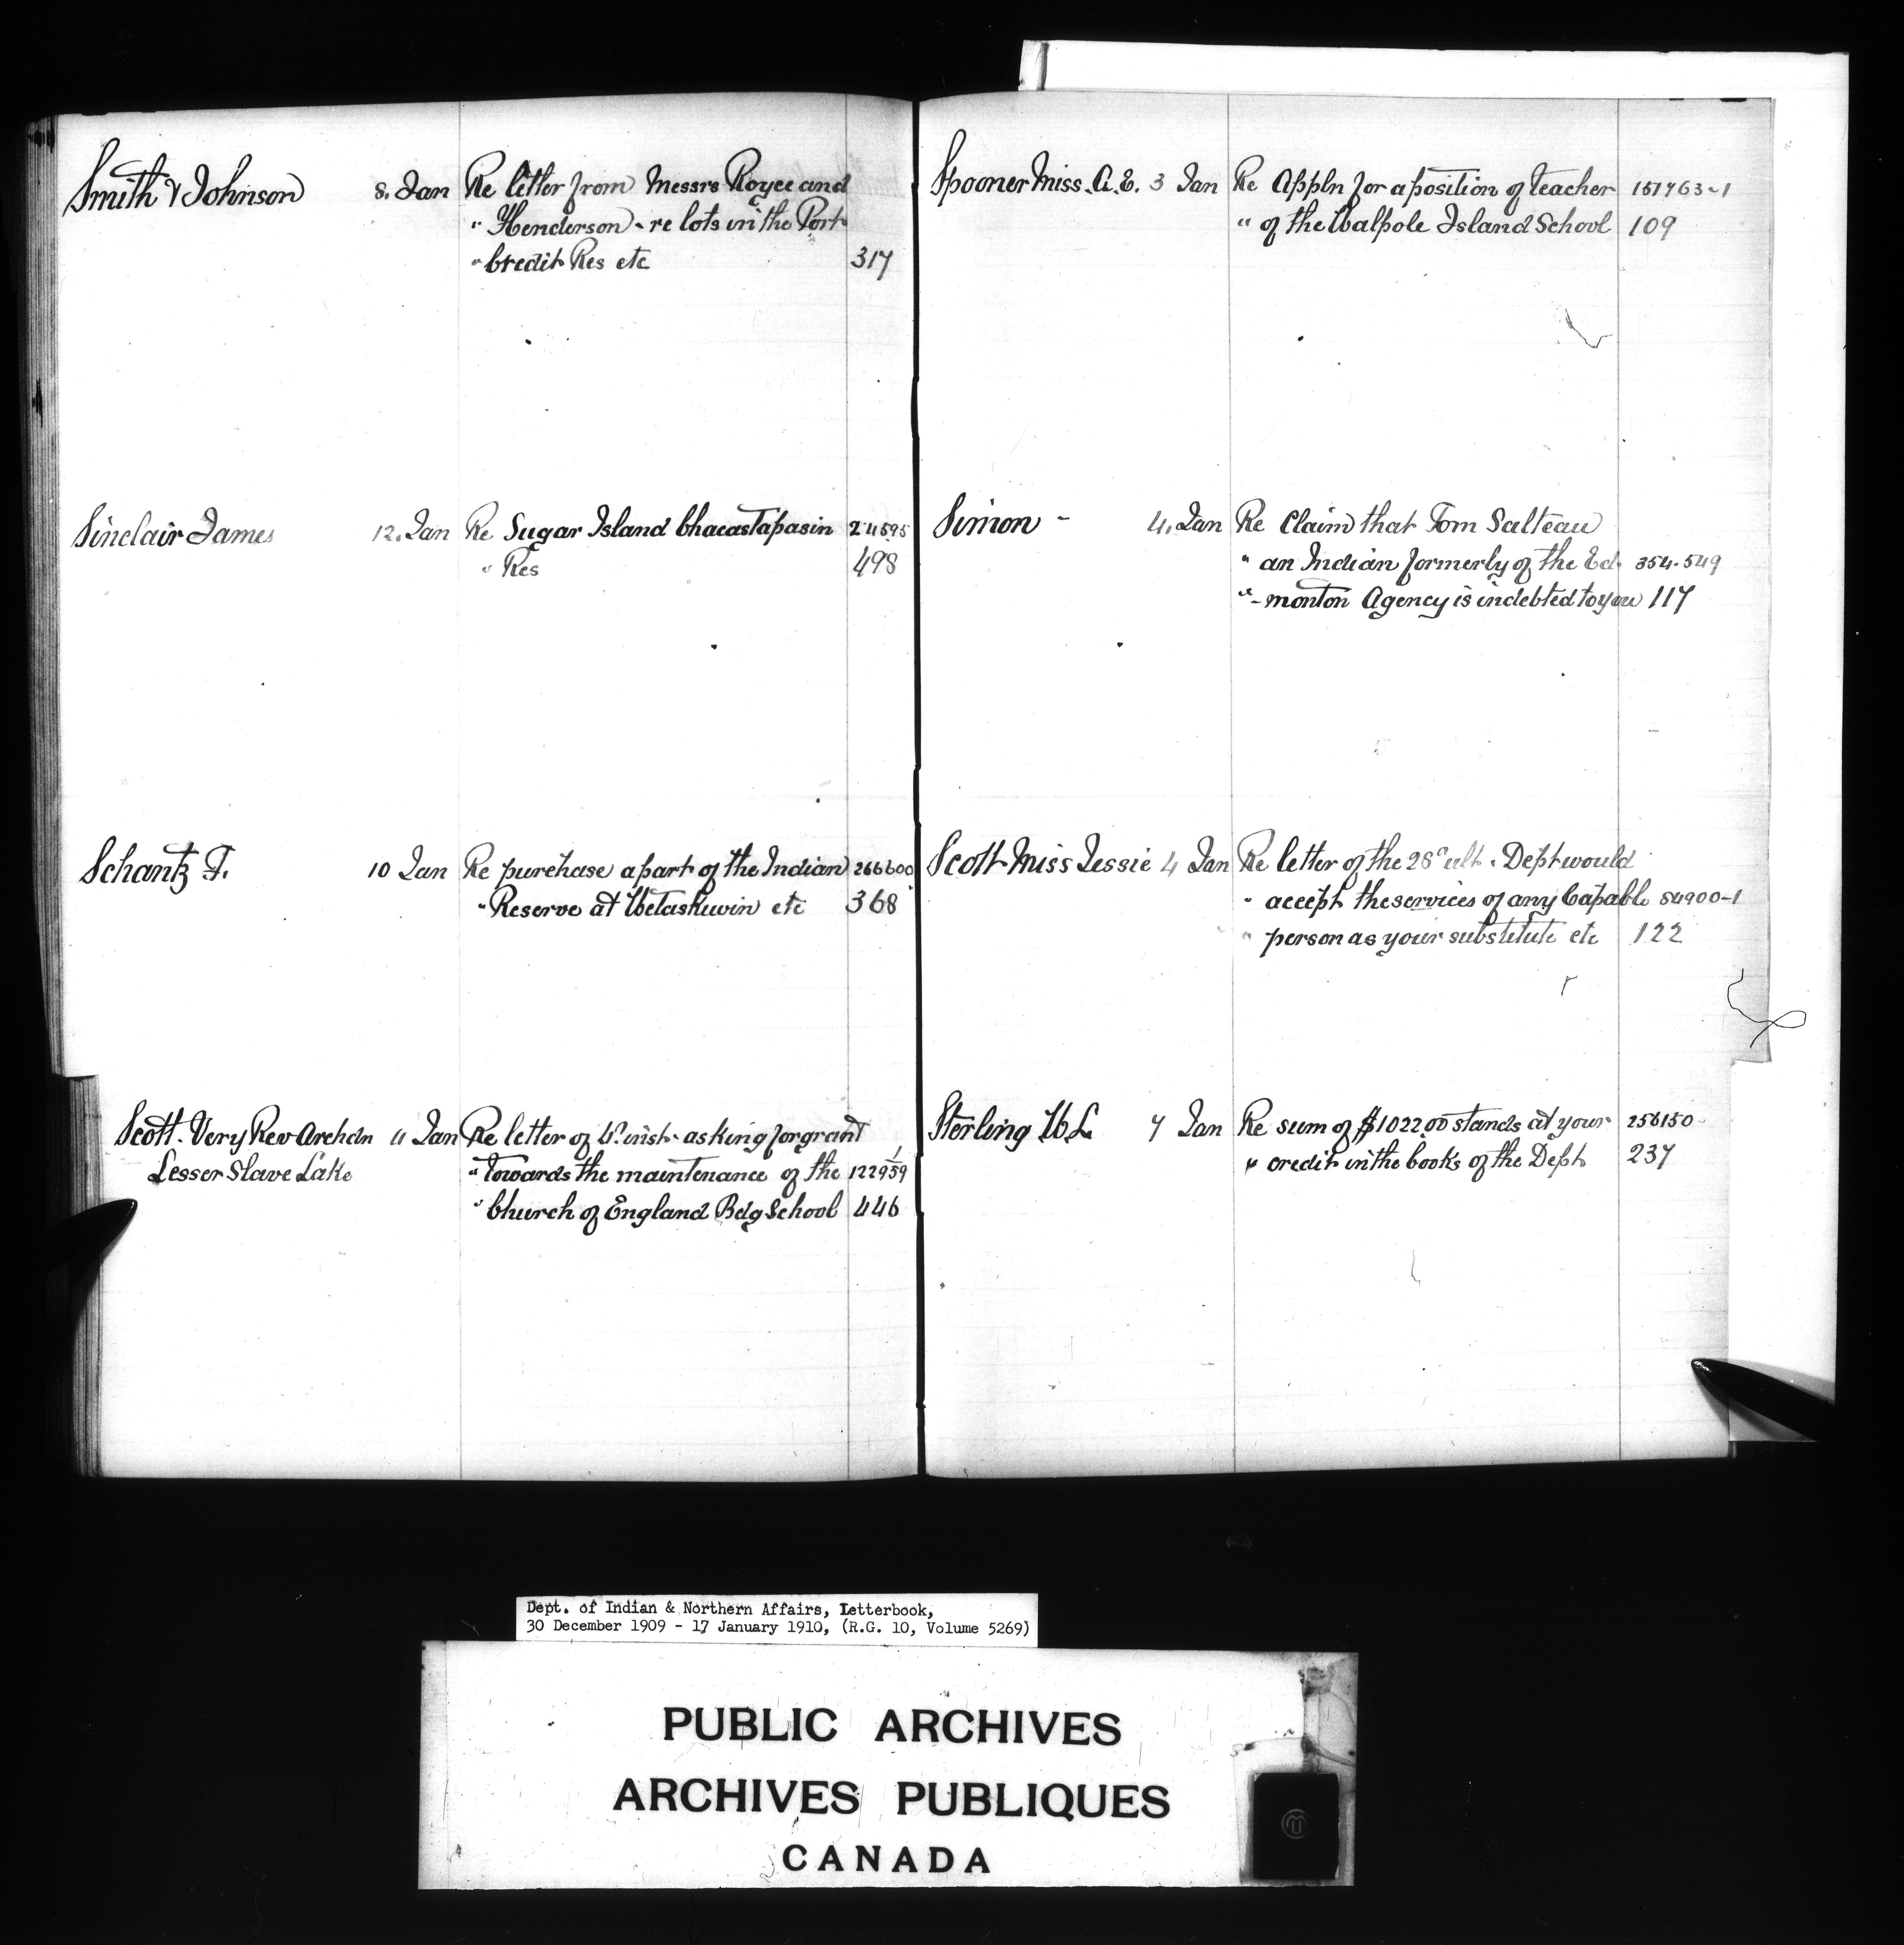 Smith & Johnson 8. Jan Re letter from Messrs Royce and
" Henderson - re lots in the Port
" Credit Res etc 317
Sinclair James 12. Jan Re Sugar Island Chacastapasin 24595
" Res 498
Schantz F. 10 Jan Re purchase a part of the Indian 266600
" Reserve at Wetaskiwin etc 368
Scott. Very Rev Archdn 11 Jan Re letter of inst. asking for grant
Lesser Slave Lake " towards the maintenance of the 122959/1
" Church of England Bdg School 446
Spooner Miss. A. E. 3 Jan Re Appln for a position of teacher 157763-1
" of the Walpole Island School 109
Simon - 4. Jan Re Claim that Tom Salteau
" an Indian formerly of the Ed- 354.549
" -monton Agency is indebted to you 117
Scott Miss Jessie 4 Jan Re letter of the 28" ult. Dept would
" accept the services of any Capable 54900-1
" person as your substitute etc 122
Sterling W. L 7 Jan Re sum of $1022.00 stands at your 256150
" credit in the books of the Dept 237
Dept. of Indian & Northern Affairs, Letterbook,
30 December 1909 - 17 January 1910, (R.G. 10, Volume 5269)
PUBLIC ARCHIVES
ARCHIVES PUBLIQUES
CANADA